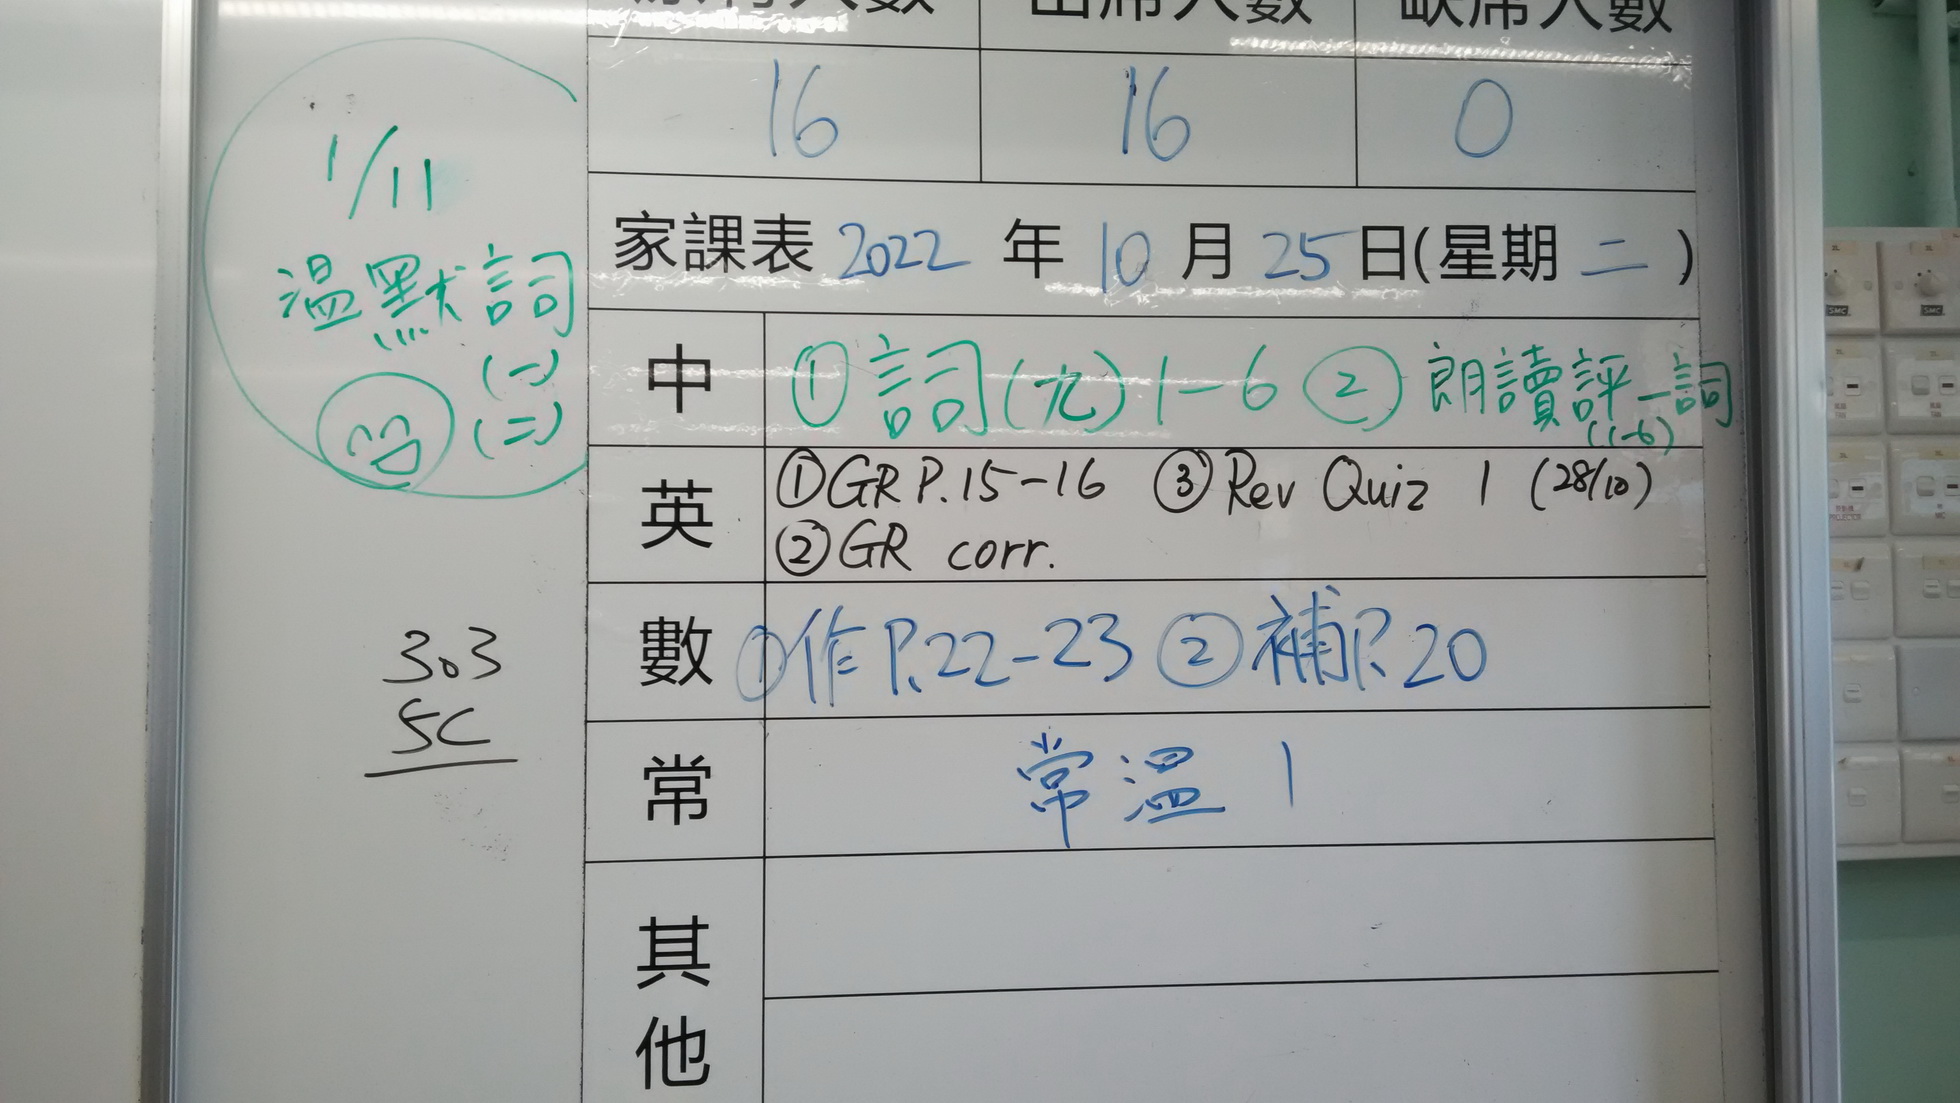 原有人數 出席人數 缺席人數
16 16 0
家課表 2022 年 10 月 25 日(星期 二 )
中 ① 詞(九) 1-6 ② 朗讀評一詞
(1-6)
英 ① GR P.15-16 ③ Rev Quiz 1 (28/10)
② GR corr.
數 ① 作 P.22-23 ② 補 P.20
常 常溫 1
其他
1/11
溫默詞
(一)
(二)
303
5C